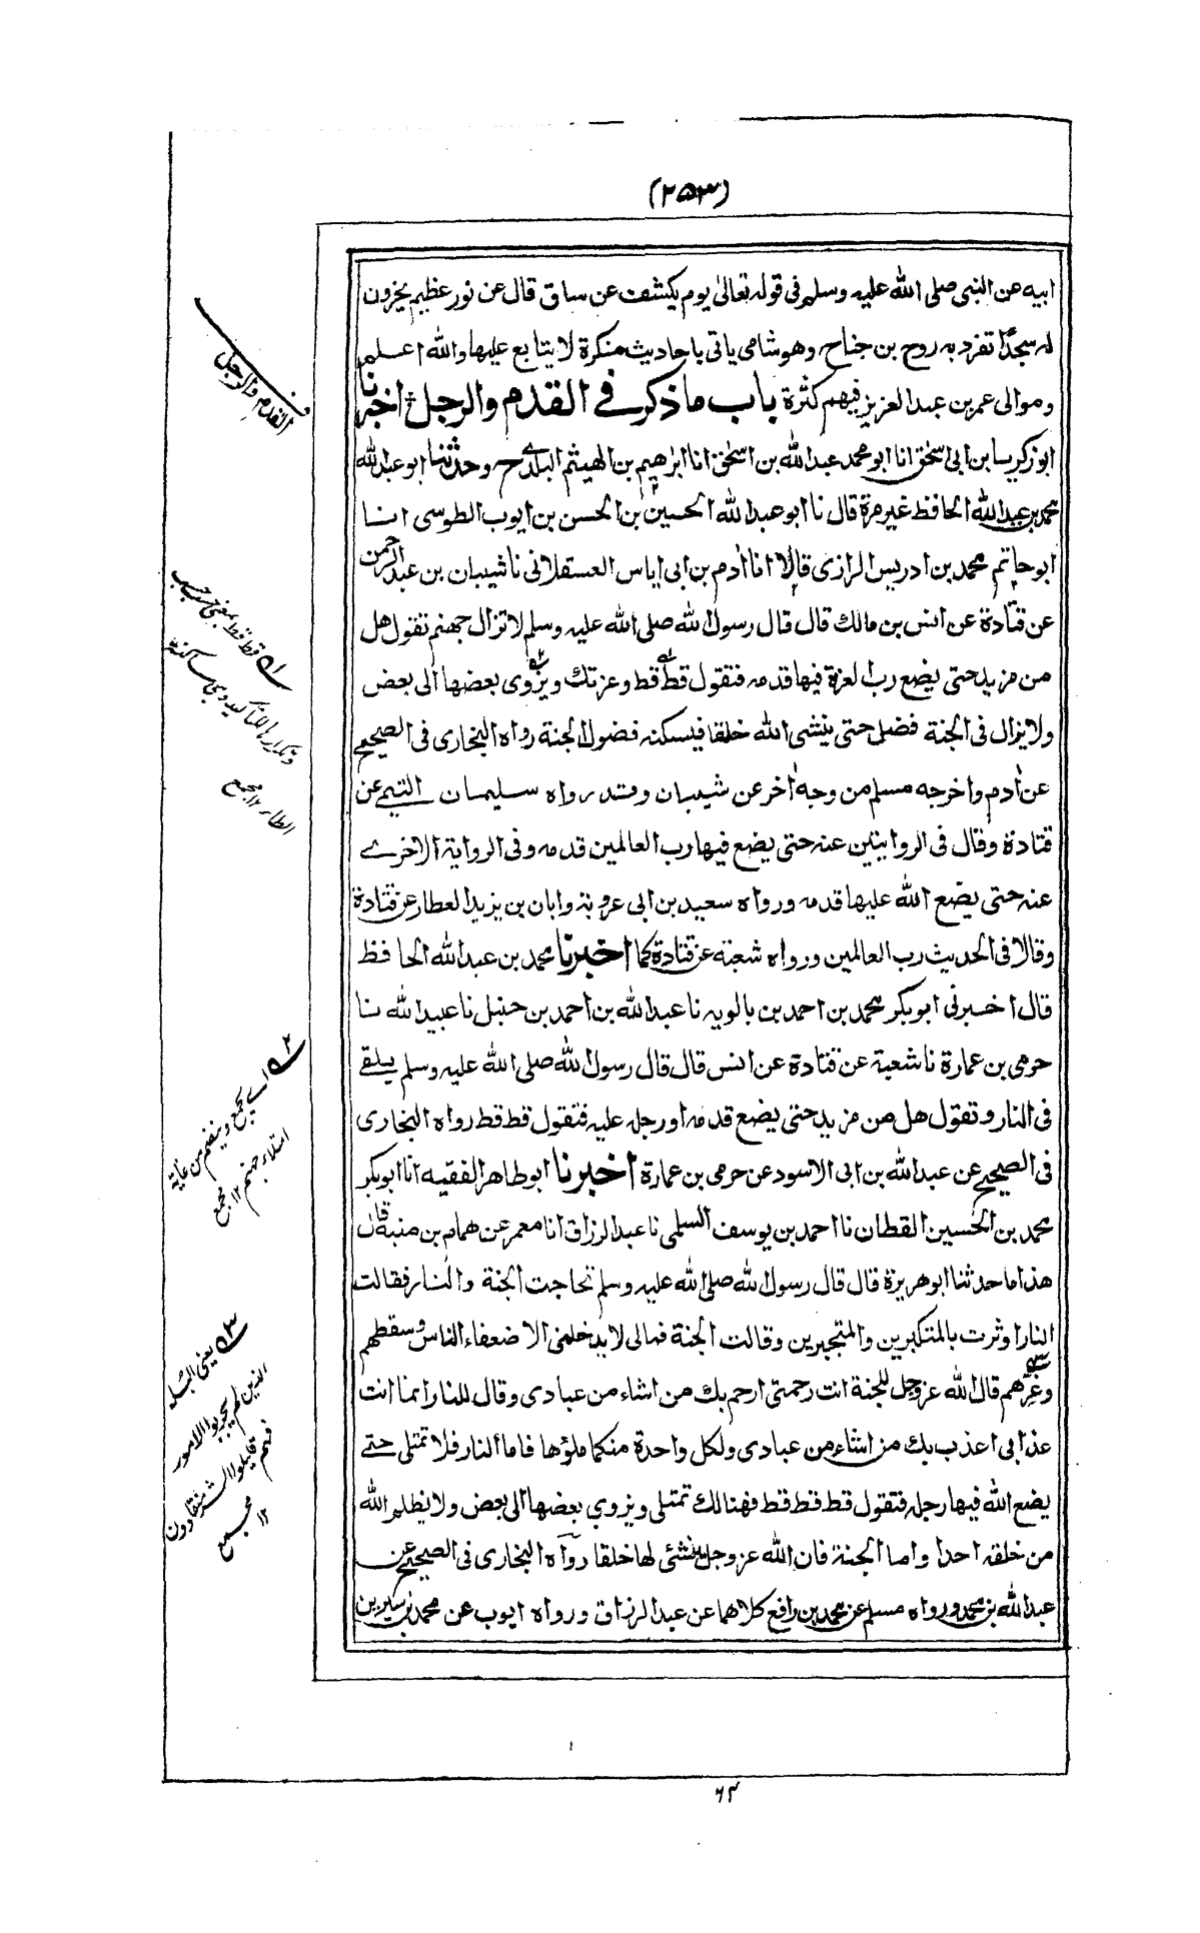 (٢٥٣)
ابيه عن النبى صلى الله عليه وسلم فى قوله تعالىٰ يوم يكشف عن ساق قال عن نور عظيم يخرون
له سجدًا تفرد به روح بن جناح وهو شامى ياتى باحاديث منكرة لا يتابع عليها والله اعلم
وموالى عمر بن عبد العزيز فيهم كثرة باب ما ذكر فى القدم والرجل اخبرنا
ابو زكريا بن ابى اسحٰق انا ابو محمد عبد الله بن اسحٰق انا ابرٰهيم بن الهيثم البلدى ح وحدثنا ابو عبد الله
محمد بن عبد الله الحافظ غير مرة قال نا ابو عبد الله الحسين بن الحسن بن ايوب الطوسى انا
ابو حاتم محمد بن ادريس الرازى قالا انا اٰدم بن ابى اياس العسقلانى نا شيبان بن عبد الرحمن
عن قتادة عن انس بن مالك قال قال رسول الله صلى الله عليه وسلم لا تزال جهنم تقول هل
من مزيد حتى يضع رب العزة فيها قدمه فتقول قط قط وعزتك ويزوى بعضها الى بعض
ولا يزال فى الجنة فضل حتى ينشى الله خلقا فيسكنه فضول الجنة رواه البخارى فى الصحيح
عن اٰدم واخرجه مسلم من وجه اٰخر عن شيبان وقد رواه سليمان التيمى عن
قتادة وقال فى الروايتين عنه حتى يضع فيها رب العالمين قدمه وفى الرواية الاخرى
عنه حتى يضع الله عليها قدمه ورواه سعيد بن ابى عروبة وابان بن يزيد العطار عن قتادة
وقالا فى الحديث رب العالمين ورواه شعبة عن قتادة كما اخبرنا محمد بن عبد الله الحافظ
قال اخبرنى ابو بكر محمد بن احمد بن بالويه نا عبد الله بن احمد بن حنبل نا عبيد الله نا
حرمى بن عمارة نا شعبة عن قتادة عن انس قال قال رسول الله صلى الله عليه وسلم يلقى
فى النار وتقول هل من مزيد حتى يضع قدمه او رجله عليه فتقول قط قط رواه البخارى
فى الصحيح عن عبد الله بن ابى الاسود عن حرمى بن عمارة اخبرنا ابو طاهر الفقيه انا ابو بكر
محمد بن الحسين القطان نا احمد بن يوسف السلمى نا عبد الرزاق انا معمر عن همام بن منبه قال
هذا ما حدثنا ابو هريرة قال قال رسول الله صلى الله عليه وسلم تحاجت الجنة والنار فقالت
النار اوثرت بالمتكبرين والمتجبرين وقالت الجنة فمالى لا يدخلنى الا ضعفاء الناس وسقطهم
وغرهم قال الله عز وجل للجنة انت رحمتى ارحم بك من اشاء من عبادى وقال للنار انما انت
عذابى اعذب بك من اشاء من عبادى ولكل واحدة منكما ملؤها فاما النار فلا تمتلى حتى
يضع الله فيها رجله فتقول قط قط قط فهنالك تمتلى ويزوى بعضها الى بعض ولا يظلم الله
من خلقه احدا واما الجنة فان الله عز وجل ينشئ لها خلقا رواه البخارى فى الصحيح عن
عبد الله بن محمد ورواه مسلم عن محمد بن رافع كلاهما عن عبد الرزاق ورواه ايوب عن محمد بن سيرين
القدم والرجل
١ قط قط بمعنى حسب
وتكراره للتاكيد وهى ساكنة
الطاء ١٢ مجمع
٢ اى يجمع وينضم من غاية
امتلاء جهنم ١٢ مجمع
٣ يعنى البله
الذين لم يجربوا الامور
فهم قليلوا الشر منقادون
١٢ مجمع
٦٤